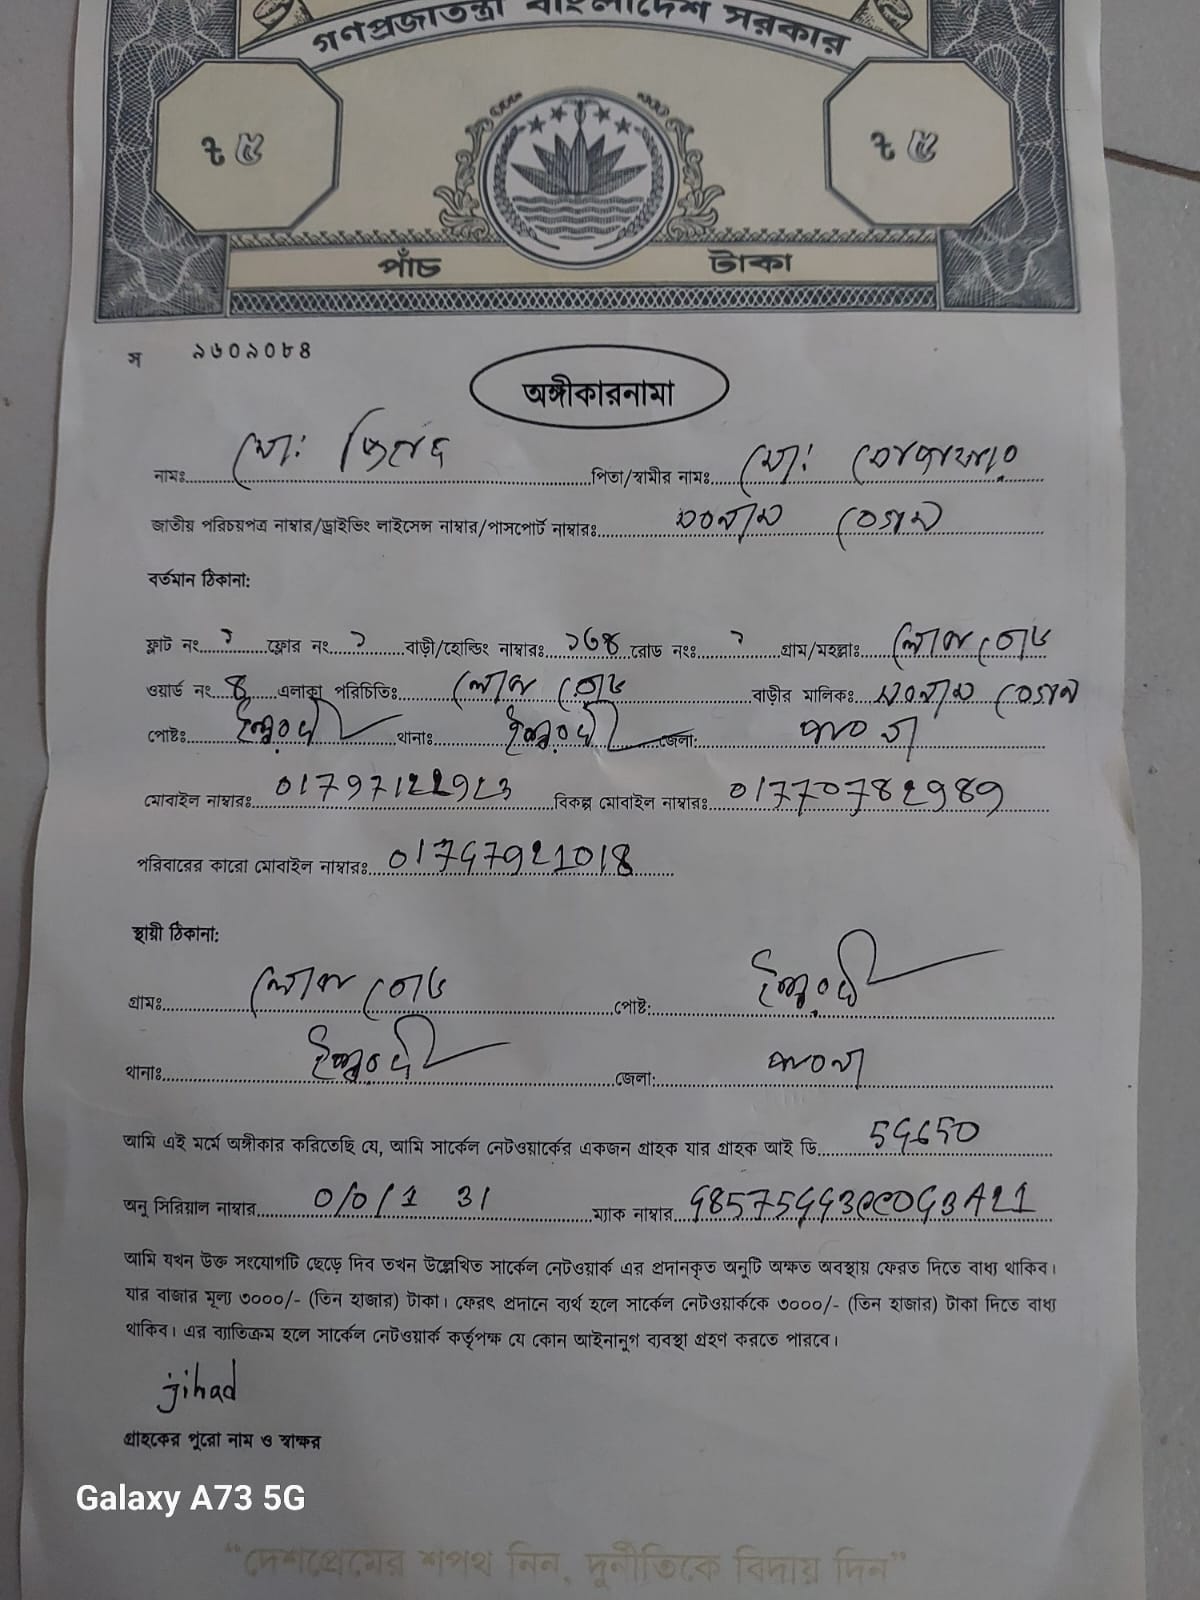 গণপ্রজাতন্ত্রী বাংলাদেশ সরকার
৳ ৫ ৳ ৫
পাঁচ টাকা
স ৯৬০৯০৮৪
অঙ্গীকারনামা
নামঃ মো: জিহাদ পিতা/স্বামীর নামঃ মো:
জাতীয় পরিচয়পত্র নাম্বার/ড্রাইভিং লাইসেন্স নাম্বার/পাসপোর্ট নাম্বারঃ বেগম
বর্তমান ঠিকানা:
ফ্লাট নং ফ্লোর নং বাড়ী/হোল্ডিং নাম্বারঃ রোড নংঃ গ্রাম/মহল্লাঃ
ওয়ার্ড নং ৪ এলাকা পরিচিতিঃ বাড়ীর মালিকঃ বেগম
পোষ্টঃ ঈশ্বরদী থানাঃ ঈশ্বরদী জেলা: পাবনা
মোবাইল নাম্বারঃ বিকল্প মোবাইল নাম্বারঃ 01770782989
পরিবারের কারো মোবাইল নাম্বারঃ
স্থায়ী ঠিকানা:
গ্রামঃ পোষ্ট: ঈশ্বরদী
থানাঃ ঈশ্বরদী জেলা: পাবনা
আমি এই মর্মে অঙ্গীকার করিতেছি যে, আমি সার্কেল নেটওয়ার্কের একজন গ্রাহক যার গ্রাহক আই ডি
অনু সিরিয়াল নাম্বার 0/0/1 31 ম্যাক নাম্বার
আমি যখন উক্ত সংযোগটি ছেড়ে দিব তখন উল্লেখিত সার্কেল নেটওয়ার্ক এর প্রদানকৃত অনুটি অক্ষত অবস্থায় ফেরত দিতে বাধ্য থাকিব।
যার বাজার মূল্য ৩০০০/- (তিন হাজার) টাকা। ফেরৎ প্রদানে ব্যর্থ হলে সার্কেল নেটওয়ার্ককে ৩০০০/- (তিন হাজার) টাকা দিতে বাধ্য
থাকিব। এর ব্যাতিক্রম হলে সার্কেল নেটওয়ার্ক কর্তৃপক্ষ যে কোন আইনানুগ ব্যবস্থা গ্রহণ করতে পারবে।
jihad
গ্রাহকের পুরো নাম ও স্বাক্ষর
Galaxy A73 5G
“দেশপ্রেমের শপথ নিন, দুর্নীতিকে বিদায় দিন”